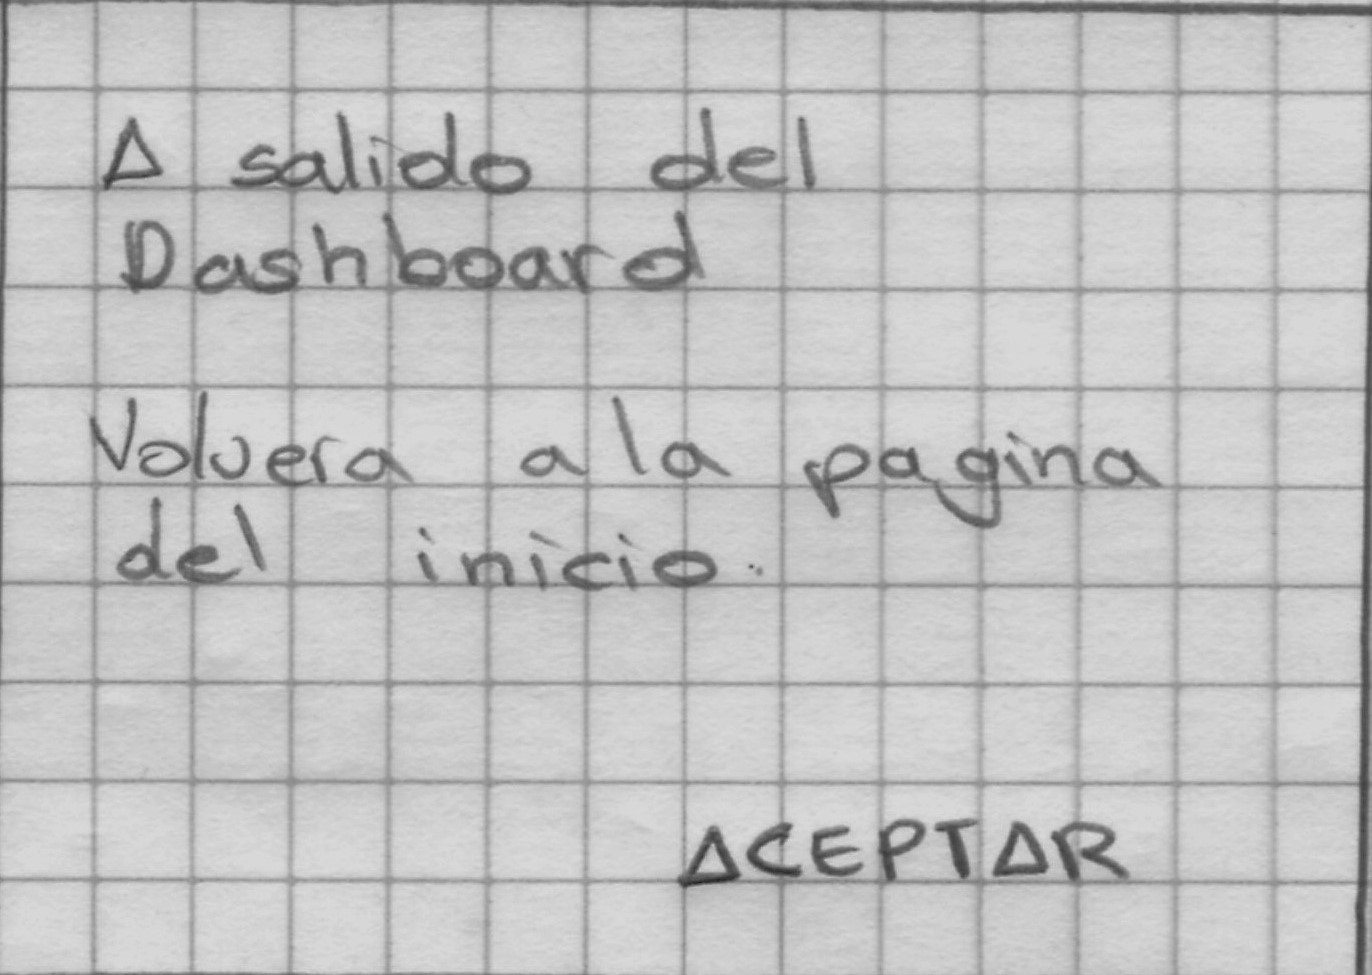 A salido del
Dashboard
Volvera a la pagina
del inicio.
ACEPTAR